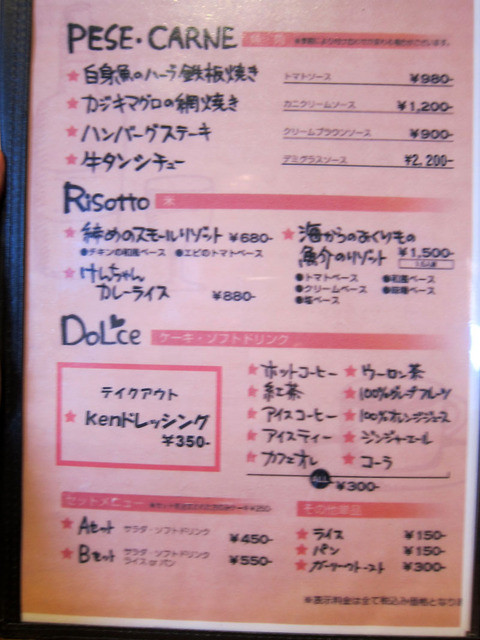 PESE・CARNE
★自身魚のハーブ鉄板焼き トマトソース ¥980-
★カジキマグロの網焼き カニクリームソース ¥1,200-
★ハンバーグステーキ クリームブラウンソース ¥900-
★牛タンシチュー デミグラスソース ¥2,200-
Risotto 米
★締めのスモールリゾット ¥680-
●チキンの和風ベース ●エビのトマトベース
★けんちゃん
カレーライス ¥880-
★海からのおくりもの
魚介のリゾット ¥1,500-
●トマトベース ●和風ベース
●クリームベース
●塩ベース
DoLce ケーキ・ソフトドリンク
テイクアウト
★kenドレッシング
¥350-
★ホットコーヒー ★ウーロン茶
★紅茶 ★100%グレープフルーツ
★アイスコーヒー ★100%オレンジジュース
★アイスティー ★ジンジャーエール
★カフェオレ ★コーラ
ALL ¥300-
セットメニュー
★Aセット サラダ・ソフトドリンク ¥450-
★Bセット サラダ・ソフトドリンク
ライス or パン ¥550-
その他単品
★ライス ¥150-
★パン ¥150-
★ガーリックトースト ¥300-
※表示料金は全て税込み価格となり